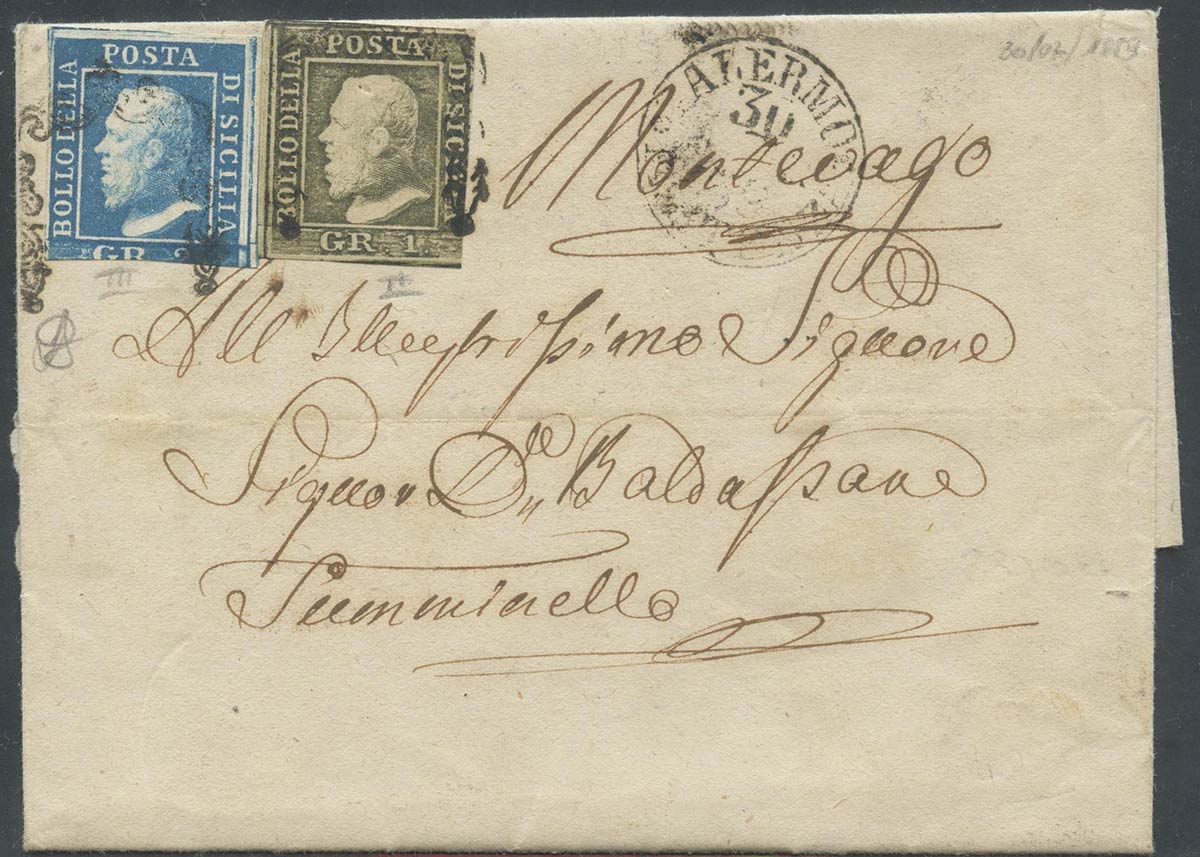 POSTA
BOLLO DELLA
DI SICILIA
GR 2
POSTA
BOLLO DELLA
DI SIC
GR 1.
PALERMO
30
30/07/1859
Montevago
III
II
All Illustrissimo Signore
Signor Dn Baldassare